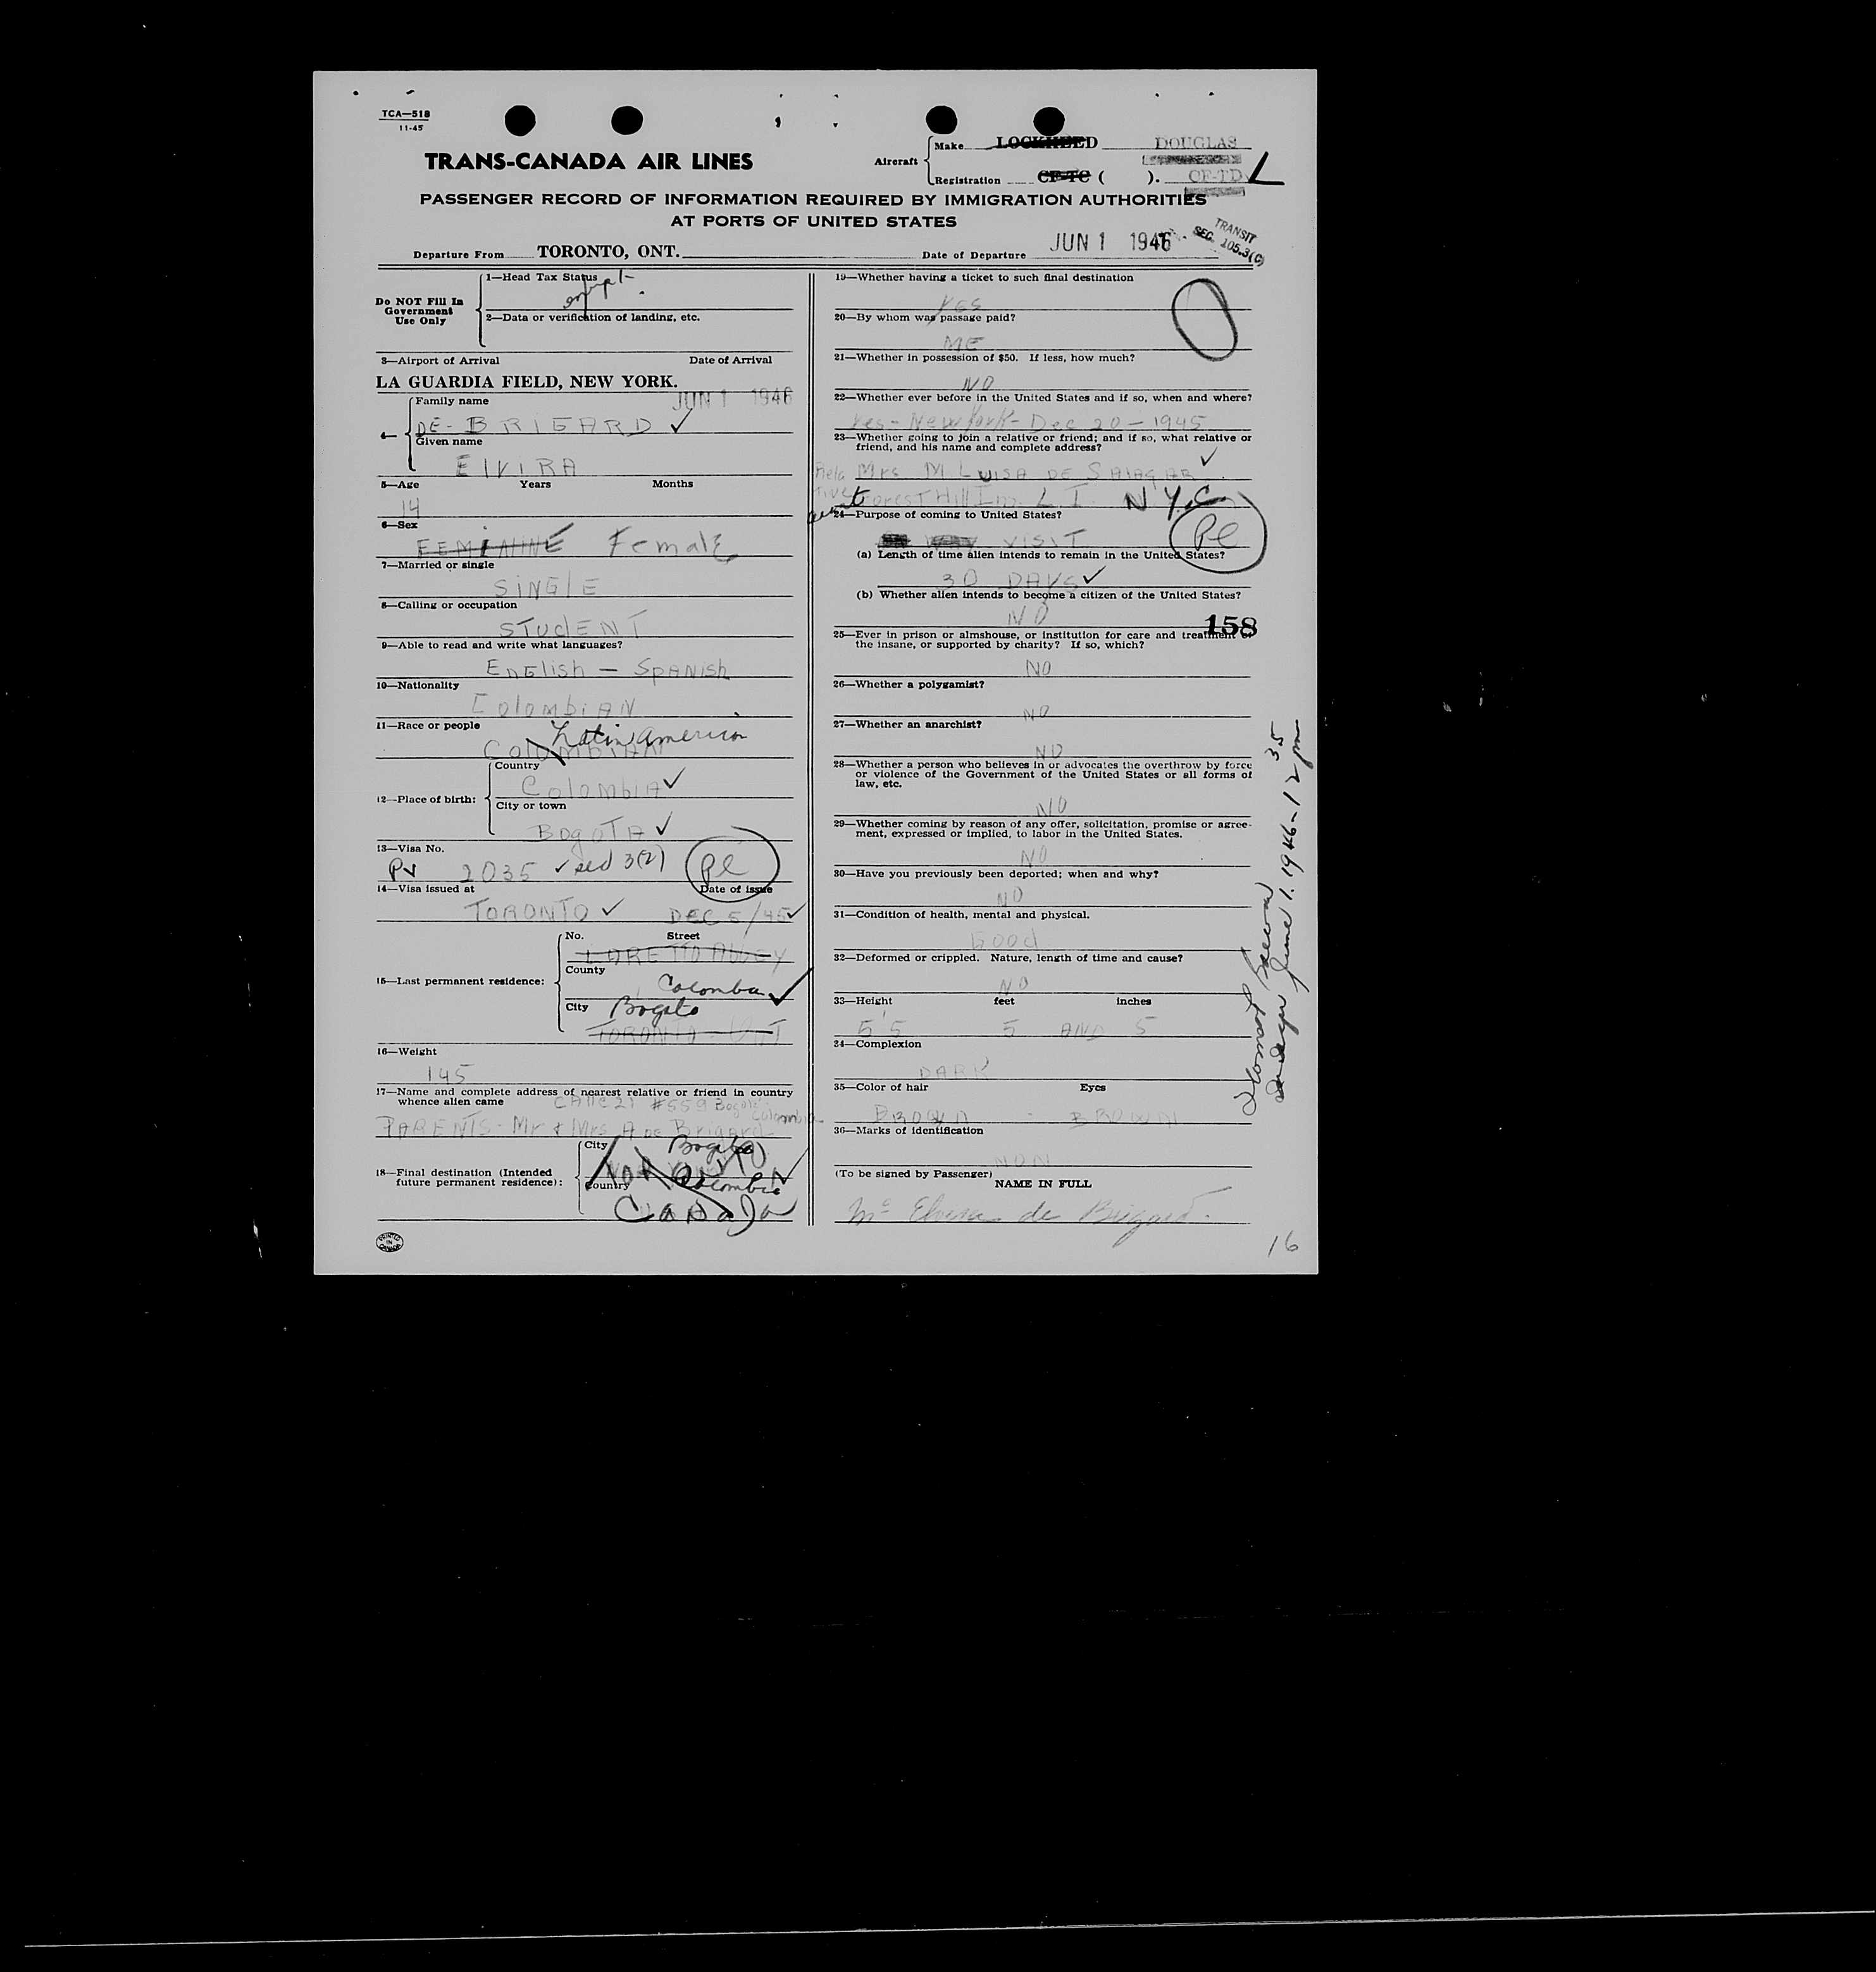 TCA—518
11-45
TRANS-CANADA AIR LINES
Aircraft
Make LOCKHEED DOUGLAS
Registration CF-TC ( ). CF-TD
PASSENGER RECORD OF INFORMATION REQUIRED BY IMMIGRATION AUTHORITIES
AT PORTS OF UNITED STATES
TRANSIT
SEC. 105.3(C)
Departure From TORONTO, ONT. Date of Departure JUN 1 1946
Do NOT Fill In
Government
Use Only
1—Head Tax Status
exempt
2—Data or verification of landing, etc.
3—Airport of Arrival Date of Arrival
LA GUARDIA FIELD, NEW YORK.
JUN 1 1946
4—
Family name
DE-BRIGARD ✓
Given name
ElVIRA
5—Age Years Months
14
6—Sex
FEMININE Female
7—Married or single
SiNGlE
8—Calling or occupation
STudENT
9—Able to read and write what languages?
ENGlish — SpANish
10—Nationality
ColombiAN
11—Race or people
Latin American
COlOMBIAN
12—Place of birth:
Country
Colombia ✓
City or town
BogoTA ✓
13—Visa No.
PV 2035 ✓ sec 3(2)
14—Visa issued at Date of issue
TORONTO ✓ DEC 5/45 ✓
15—Last permanent residence:
No. Street
LORETTO ABBEY
County
Colombia ✓
City Bogota
TORONTO - ONT
16—Weight
145
17—Name and complete address of nearest relative or friend in country
whence alien came CAllE 21 #559 Bogota
Colombia
PARENTS - Mr & Mrs A de Brigard
18—Final destination (Intended
future permanent residence):
City Bogota
Country Colombia
Canada
PRINTED
IN
CANADA
19—Whether having a ticket to such final destination
YES
20—By whom was passage paid?
ME
21—Whether in possession of $50. If less, how much?
NO
22—Whether ever before in the United States and if so, when and where?
Yes - New York - Dec 20 - 1945
23—Whether going to join a relative or friend; and if so, what relative or
friend, and his name and complete address?
Rela Mrs M LUISA DE SAlAzAR ✓
tive ForesT Hill L I. N Y C
24—Purpose of coming to United States?
VISIT
(a) Length of time alien intends to remain in the United States?
30 DAYS ✓
(b) Whether alien intends to become a citizen of the United States?
NO
158
25—Ever in prison or almshouse, or institution for care and treatment of
the insane, or supported by charity? If so, which?
NO
26—Whether a polygamist?
NO
27—Whether an anarchist?
NO
28—Whether a person who believes in or advocates the overthrow by force
or violence of the Government of the United States or all forms of
law, etc.
NO
29—Whether coming by reason of any offer, solicitation, promise or agree-
ment, expressed or implied, to labor in the United States.
NO
30—Have you previously been deported; when and why?
NO
31—Condition of health, mental and physical.
Good
32—Deformed or crippled. Nature, length of time and cause?
NO
33—Height feet inches
5'5 5 AND 5
34—Complexion
DARK
35—Color of hair Eyes
BROWN - BROWN
36—Marks of identification
NON
(To be signed by Passenger)
NAME IN FULL
Elvira de Brigard.
June 1. 1946 - 12 35 pm
16